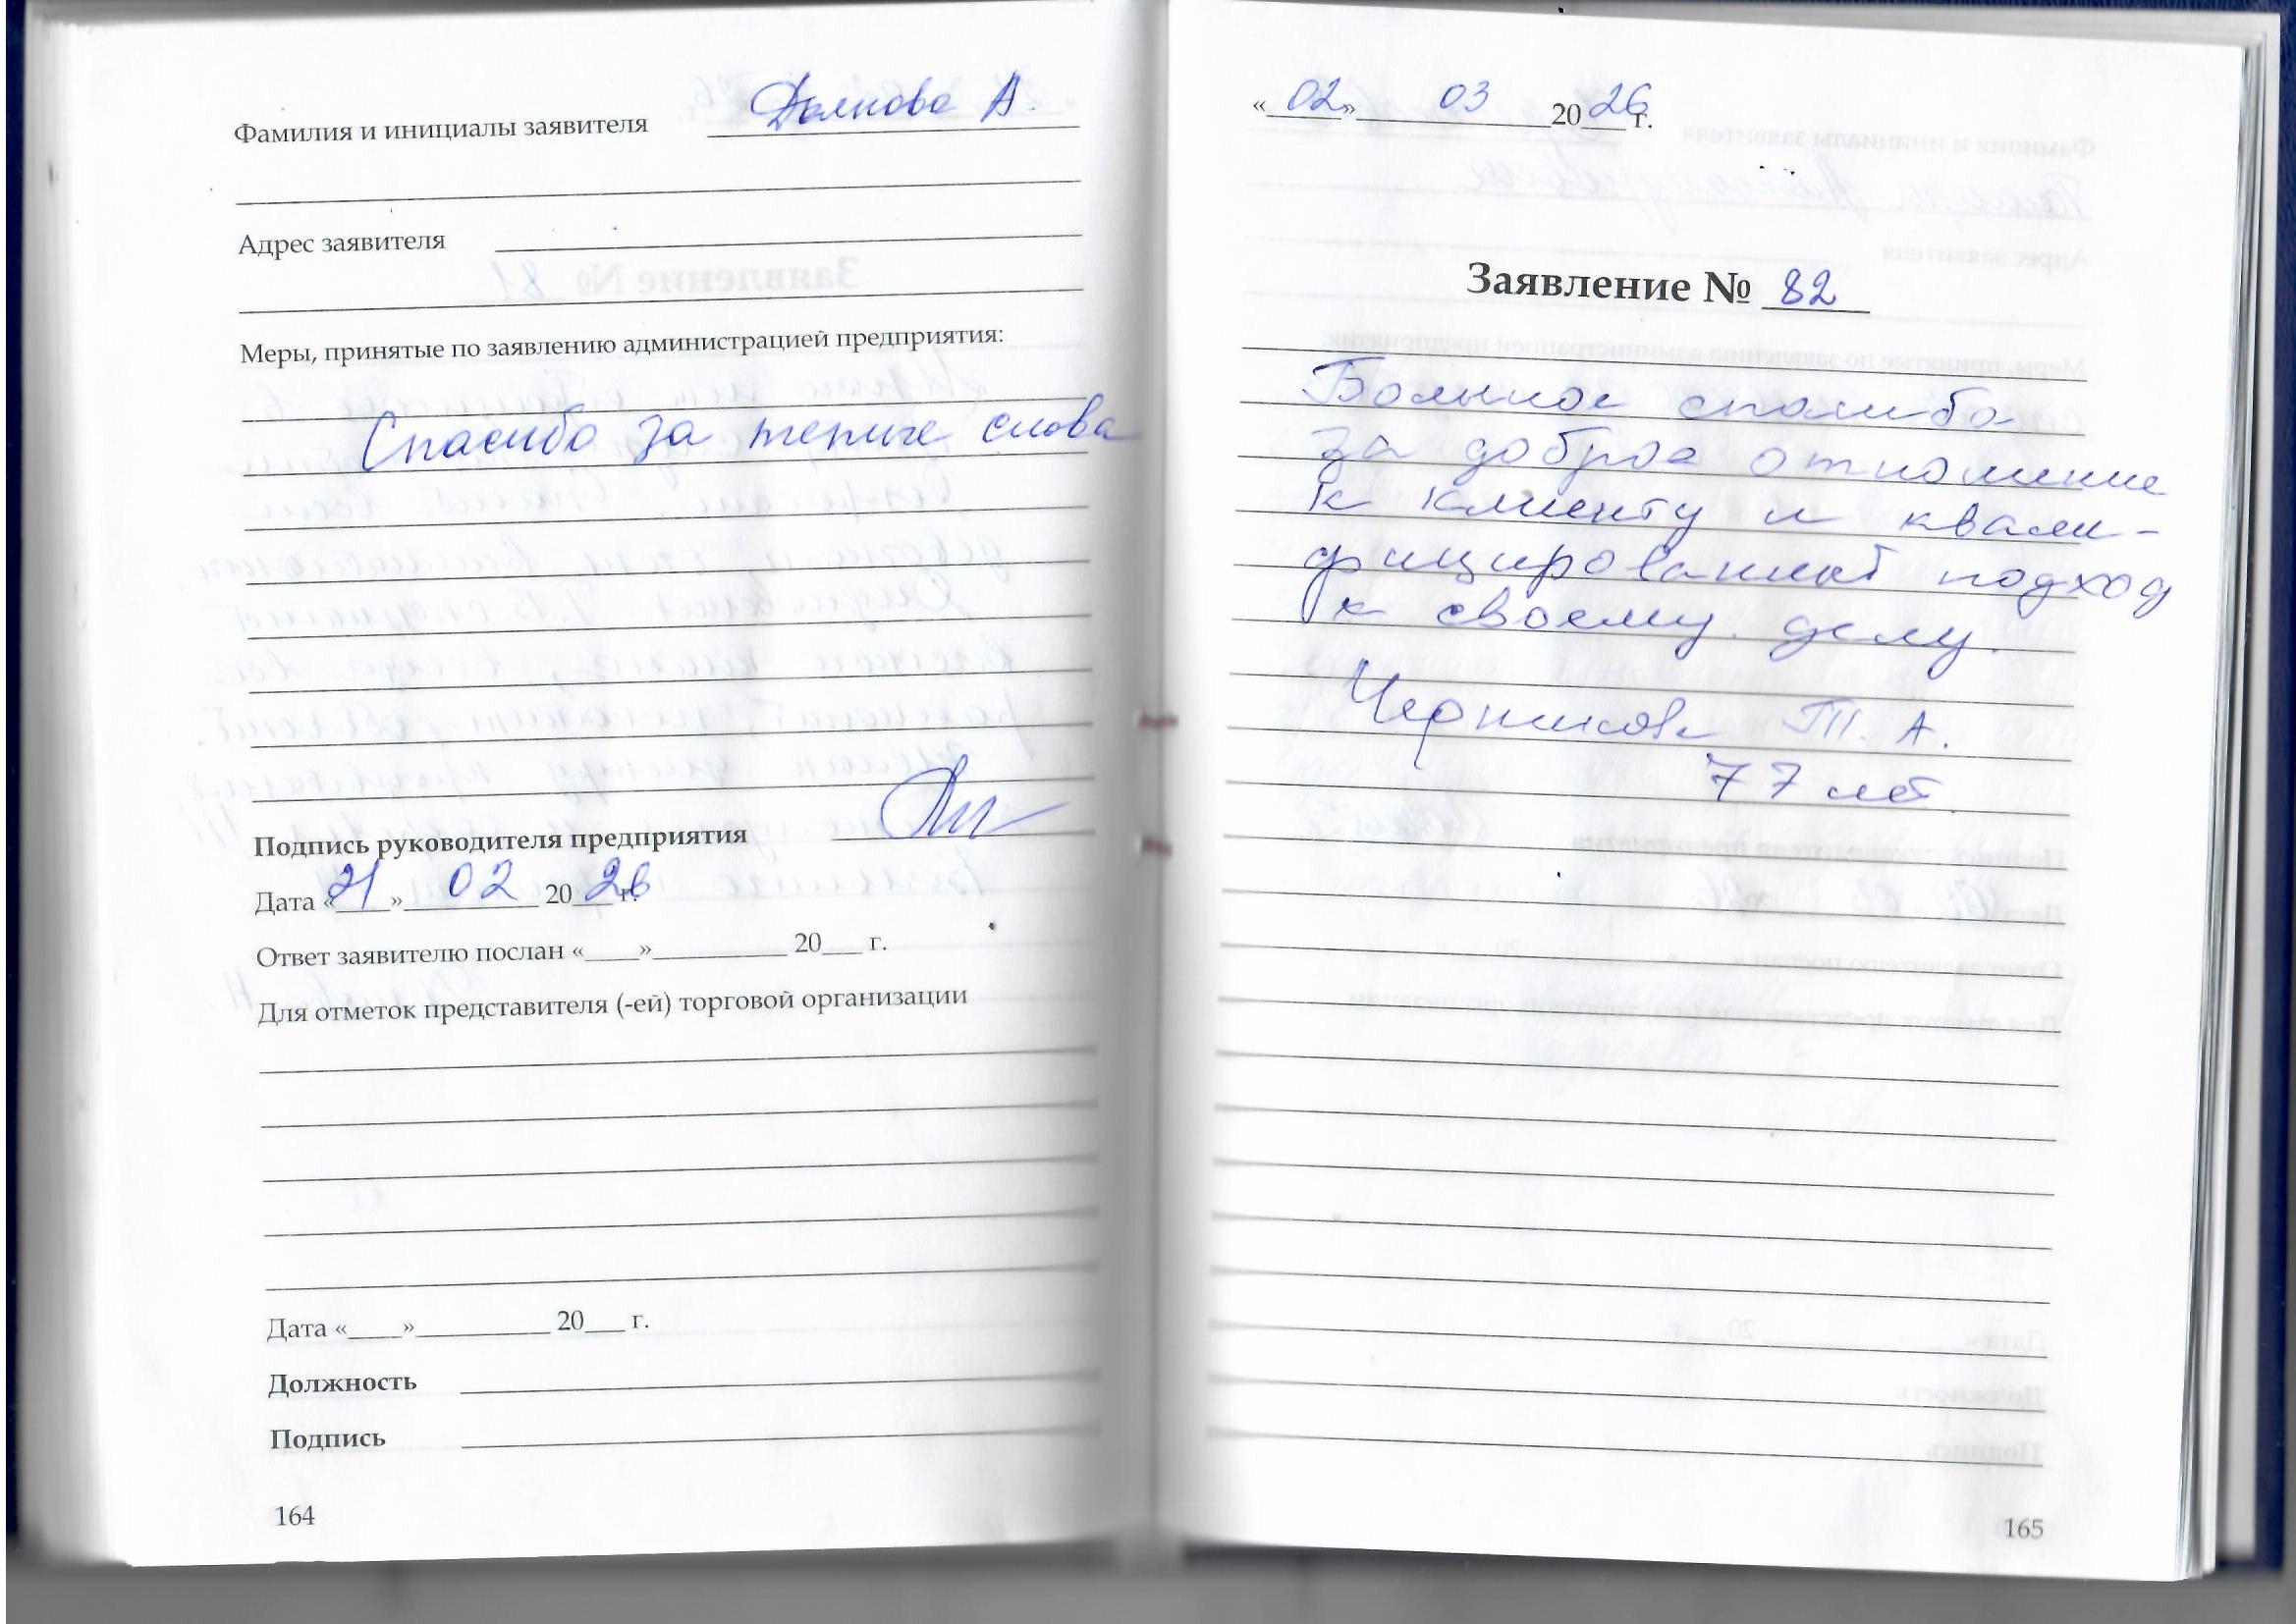 Фамилия и инициалы заявителя Долпова А.
Адрес заявителя
Меры, принятые по заявлению администрацией предприятия:
Спасибо за теплые слова
Подпись руководителя предприятия
Дата «21» 02 2026 г.
Ответ заявителю послан «____»__________ 20___ г.
Для отметок представителя (-ей) торговой организации
Дата «____»__________ 20___ г.
Должность
Подпись
164
«02» 03 2026 г.
Заявление № 82
Большое спасибо
за доброе отношение
к клиенту и квали-
фицированный подход
к своему делу.
Черникова Т. А.
77 лет
165